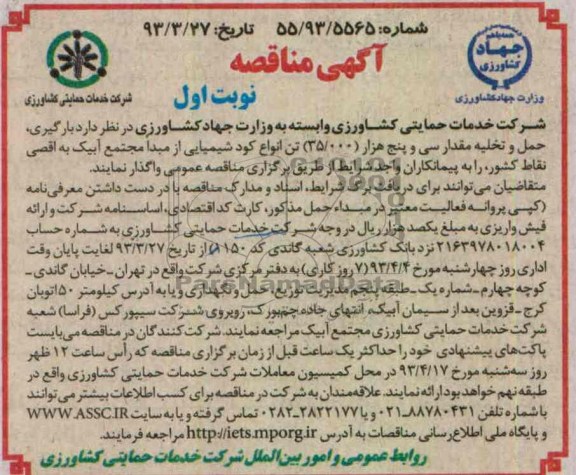 شماره: ۵۵/۹۳/۵۵۶۵ تاریخ: ۹۳/۳/۲۷
همه با هم
جهاد
کشاورزی
وزارت جهاد کشاورزی
آگهی مناقصه
نوبت اول
شرکت خدمات حمایتی کشاورزی
شرکت خدمات حمایتی کشاورزی وابسته به وزارت جهاد کشاورزی در نظر دارد بارگیری،
حمل و تخلیه مقدار سی و پنج هزار (۳۵/۰۰۰) تن انواع کود شیمیایی از مبدا مجتمع آبیک به اقصی
نقاط کشور، را به پیمانکاران واجد شرایط از طریق برگزاری مناقصه عمومی واگذار نمایند.
متقاضیان می‌توانند برای دریافت برگه شرایط، اسناد و مدارک مناقصه با در دست داشتن معرفی‌نامه
(کپی پروانه فعالیت معتبر در مبداء حمل مذکور، کارت کد اقتصادی، اساسنامه شرکت و ارائه
فیش واریزی به مبلغ یکصد هزار ریال در وجه شرکت خدمات حمایتی کشاورزی به شماره حساب
۲۱۶۳۹۷۸۰۱۸۰۰۴ نزد بانک کشاورزی شعبه گاندی کد ۱۱۵۰) از تاریخ ۹۳/۳/۲۷ لغایت پایان وقت
اداری روز چهارشنبه مورخ ۹۳/۴/۴ (۷ روز کاری) به دفتر مرکزی شرکت واقع در تهران-خیابان گاندی-
کوچه چهارم-شماره یک-طبقه پنجم مدیریت توزیع، حمل و نگهداری و یا به آدرس کیلومتر ۵۰ اتوبان
کرج-قزوین بعد از سیمان آبیک، انتهای جاده چم‌بورک، روبروی شرکت سیپورکس (فراسا) شعبه
شرکت خدمات حمایتی کشاورزی مجتمع آبیک مراجعه نمایند. شرکت کنندگان در مناقصه می‌بایست
پاکت‌های پیشنهادی خود را حداکثر یک ساعت قبل از زمان برگزاری مناقصه که رأس ساعت ۱۲ ظهر
روز سه‌شنبه مورخ ۹۳/۴/۱۷ در محل کمیسیون معاملات شرکت خدمات حمایتی کشاورزی واقع در
طبقه نهم خواهد بود ارائه نمایند. علاقه‌مندان به شرکت در مناقصه برای کسب اطلاعات بیشتر می‌توانند
با شماره تلفن ۸۸۷۸۰۴۳۱-۰۲۱ و یا ۲۸۲۲۱۷۷-۰۲۸۲ تماس گرفته و یا به سایت WWW.ASSC.IR
و پایگاه ملی اطلاع‌رسانی مناقصات به آدرس http://iets.mporg.ir مراجعه فرمایند.
روابط عمومی و امور بین الملل شرکت خدمات حمایتی کشاورزی